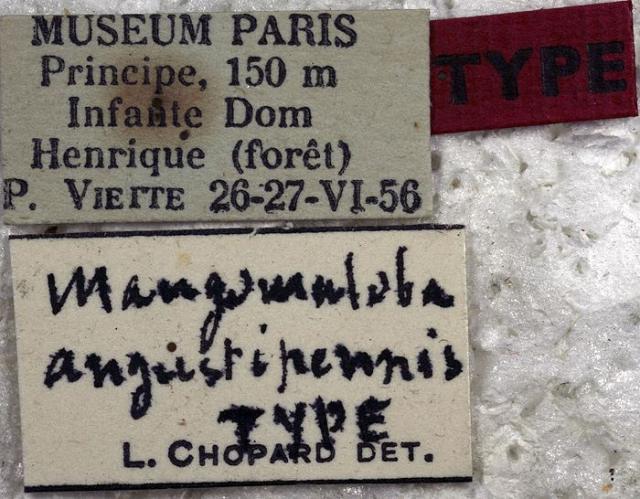 MUSEUM PARIS
Principe, 150 m
Infante Dom
Henrique (forêt)
P. VIETTE 26-27-VI-56
TYPE
Mangomaloba
angustipennis
TYPE
L. CHOPARD DET.